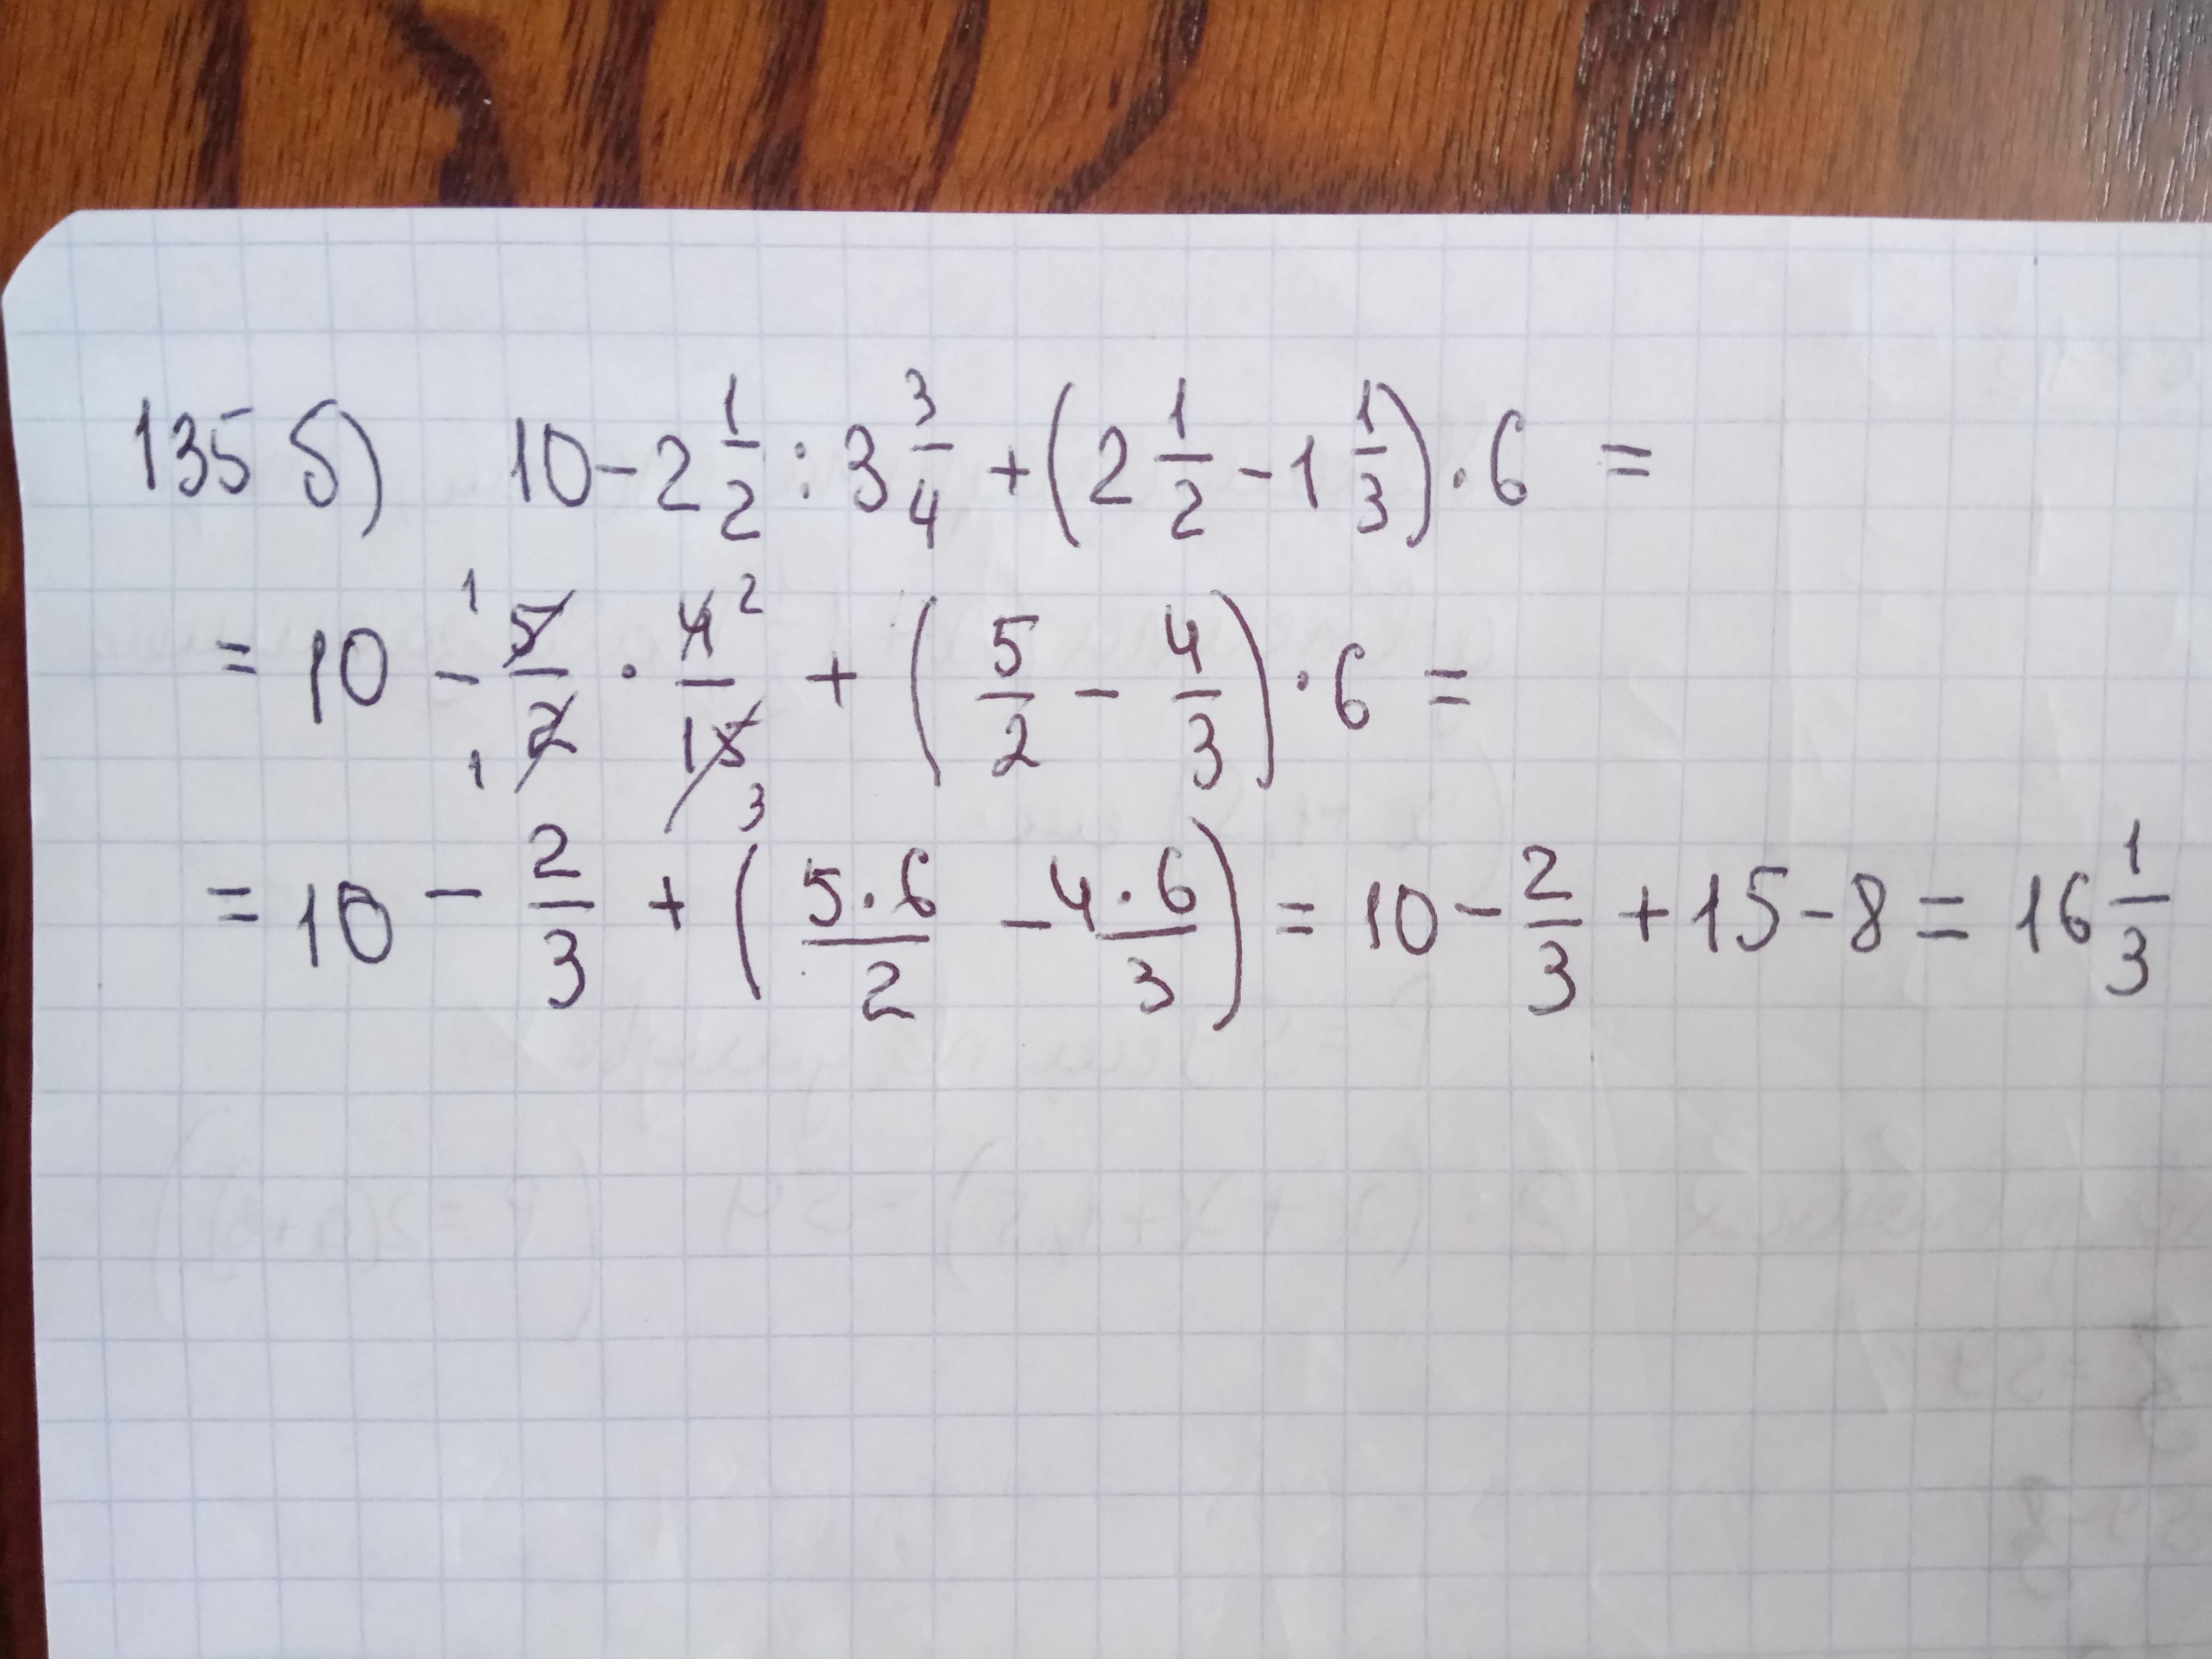 135 б) 10 - 2 1/2 : 3 3/4 + (2 1/2 - 1 1/3) · 6 =
= 10 - 1 5/2 1 · 4 2/15 3 + (5/2 - 4/3) · 6 =
= 10 - 2/3 + (5·6/2 - 4·6/3) = 10 - 2/3 + 15 - 8 = 16 1/3